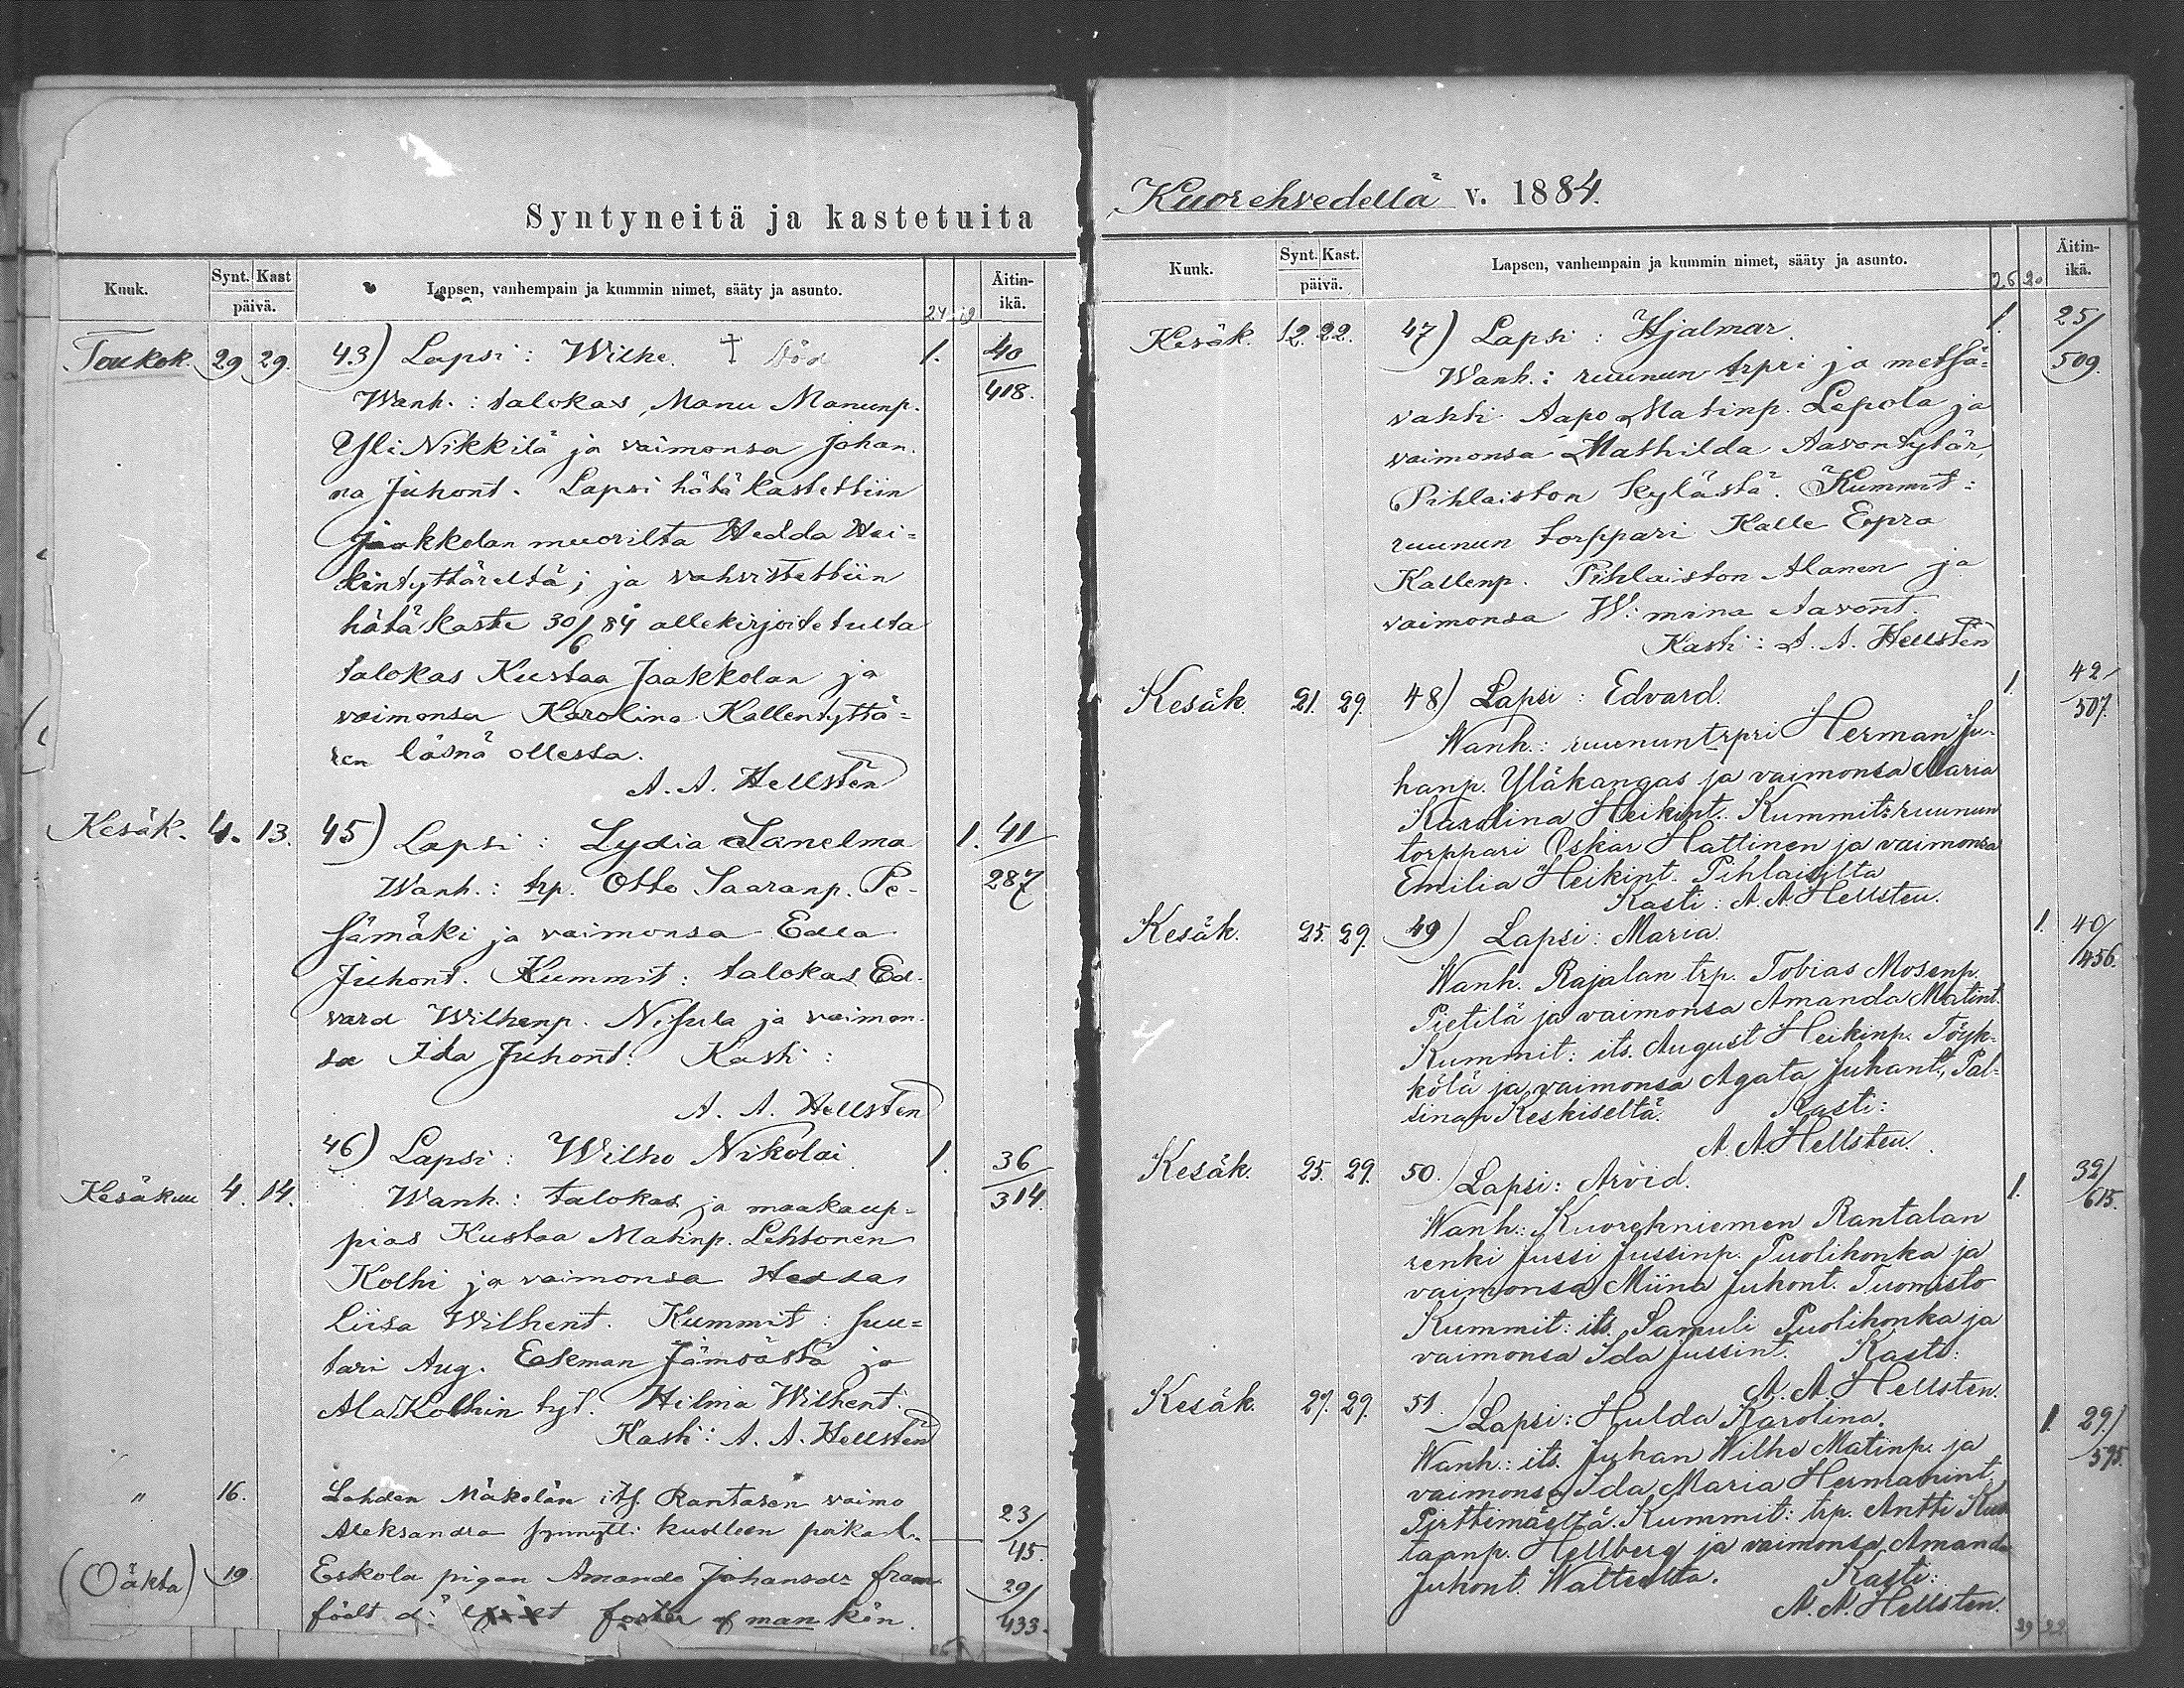 Syntyneitä ja kastetuita
Kuuk. Synt. Kast päivä. Lapsen, vanhempain ja kummin nimet, sääty ja asunto. 24 19 Äitin-ikä.
Toukok. 29 29. 43) Lapsi: Wilhe. † död 1. 40/418.
Wanh.: talokas, Manu Manunp.
Yli Nikkilä ja vaimonsa Johan-
na Juhont. Lapsi hätäkastettiin
Jaakkolan muorilta Hedda Hei=
kintyttäreltä; ja vahvistettiin
hätäkaste 30/6 84 allekirjoitetulta
talokas Kustaa Jaakkolan ja
vaimonsa Karolina Kallentyttä=
ren läsnä ollessa.
A. A. Hellstén
Kesäk. 4. 13. 45) Lapsi: Lydia Sanelma 1. 41/287
Wanh.: trp. Otto Saaranp. Pe-
sämäki ja vaimonsa Edla
Juhont. Kummit: talokas Ed-
vard Wilhenp. Nisula ja vaimon-
sa Ida Juhont. Kasti:
A. A. Hellsten
46) Lapsi: Wilho Nikolai 1. 36/314.
Kesäkuu 4. 14. Wanh.: talokas ja maakaup-
pias Kustaa Matinp. Lehtonen
Kolhi ja vaimonsa Hedda
Liisa Wilhent. Kummit: suu=
tari Aug. Eskman Jämsästä ja
Ala Kolhin tyt. Hilma Wilhent.
Kasti: A. A. Hellstén
" 16. Lahden Mäkelän its. Rantasen vaimo
Aleksandra synnytti kuolleen poikal. 23/45.
(Oäkta) 19 Eskola pigan Amanda Johansdr fram 29/433.
födt d: foster af mankön.
Kuorehvedellä v. 1884.
Kuuk. Synt. Kast. päivä. Lapsen, vanhempain ja kummin nimet, sääty ja asunto. 25 20 Äitin-ikä.
Kesäk. 12. 22. 47) Lapsi: Hjalmar. 1. 25/509.
Wanh.: ruunun trpri ja metsä=
vahti Aapo Matinp. Lepola ja
vaimonsa Mathilda Aarontytär,
Pihlaiston kylästä. Kummit:
ruunun torppari Kalle Epra
Kallenp. Pihlaiston Alanen ja
vaimonsa W:mina Aaront.
Kasti: A. A. Hellstén
Kesäk. 21. 29. 48) Lapsi: Edvard. 1. 42/507.
Wanh.: ruununtrpri Herman Ju-
hanp. Yläkangas ja vaimonsa Maria
Karolina Heikint. Kummit: ruunun
torppari Oskar Hattinen ja vaimonsa
Emilia Heikint. Pihlaisilta
Kasti: A. A. Hellsten.
Kesäk. 25. 29. 49) Lapsi: Maria. 1. 40/456.
Wanh. Rajalan trp. Tobias Mosenp.
Pietilä ja vaimonsa Amanda Matint.
Kummit: its. August Heikinp. Töyk-
kölä ja vaimonsa Agata Juhant., Pal-
sinan Keskiseltä. Kasti:
A. A. Hellsten.
Kesäk. 25. 29. 50.) Lapsi: Arvid. 1. 32/615.
Wanh.: Kuorehniemen Rantalan
renki Jussi Jussinp. Puolihonka ja
vaimonsa Miina Juhont. Tuomisto
Kummit: its. Samuli Puolihonka ja
vaimonsa Ida Jussint. Kasti:
A. A. Hellsten.
Kesäk. 27. 29. 51.) Lapsi: Hulda Karolina. 1. 29/595.
Wanh.: its. Juhan Wilho Matinp. ja
vaimonsa Ida Maria Hermanint.
Pirttimäeltä. Kummit: trp. Antti Kus-
taanp. Hellberg ja vaimonsa Amanda
Juhont. Kasti:
A. A. Hellsten.
29 22